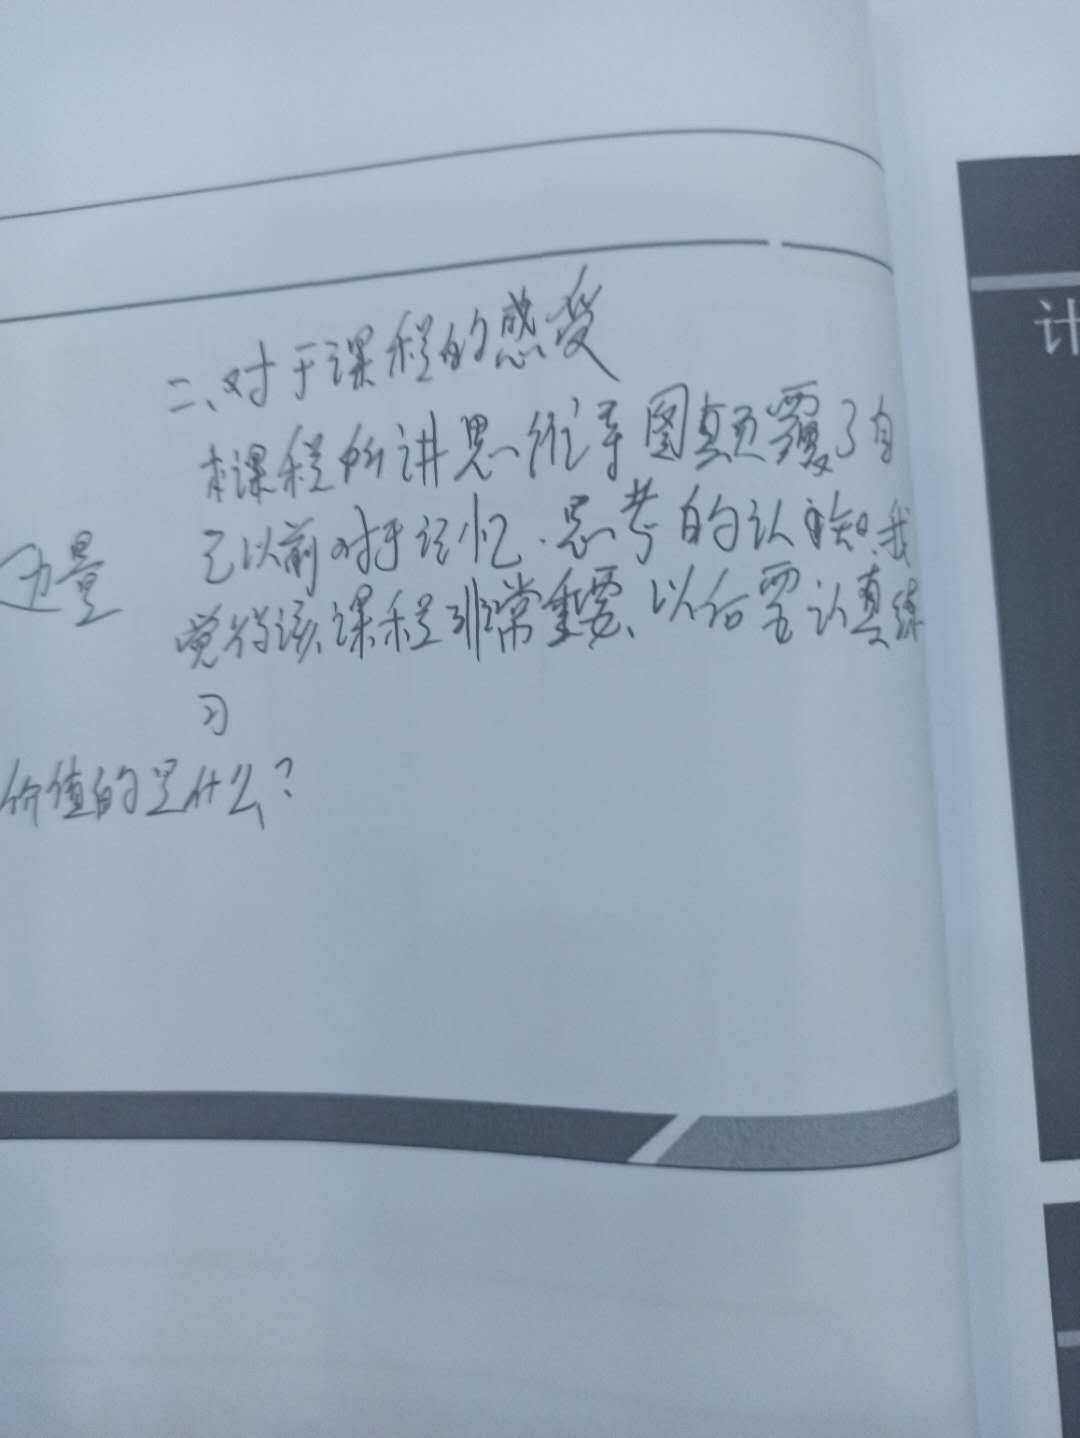 二、对于课程的感受
本课程所讲思维导图真颠覆了自
己以前对于记忆.思考的认知.我
觉得该课程非常重要、以后要认真练
习
力量
价值的是什么?
计